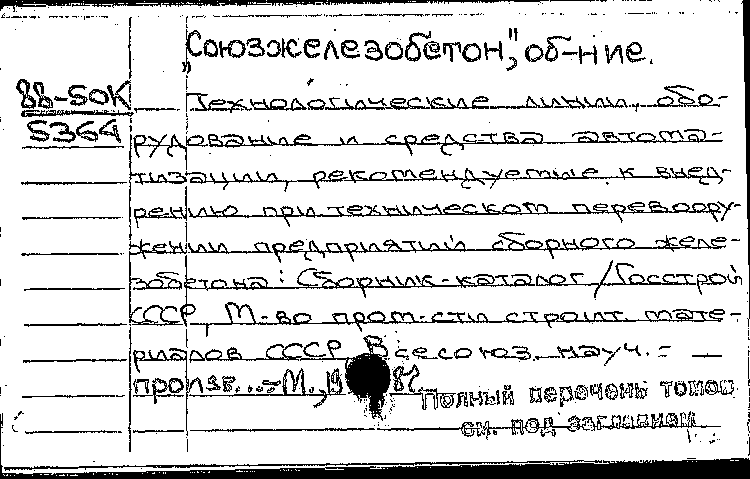 „Союзжелезобетон,” об-ние.
88-50К
5364
Технологические линии, обо-
рудование и средства автома-
тизации, рекомендуемые к внед-
рению при техническом перевоору-
жении предприятий сборного желе-
зобетона : Сборник-каталог / Госстрой
СССР, М-во пром-сти строит. мате-
риалов СССР, Всесоюз. науч.-
произв...-М., 19 87.
Полный перечень томов
см. под заглавием